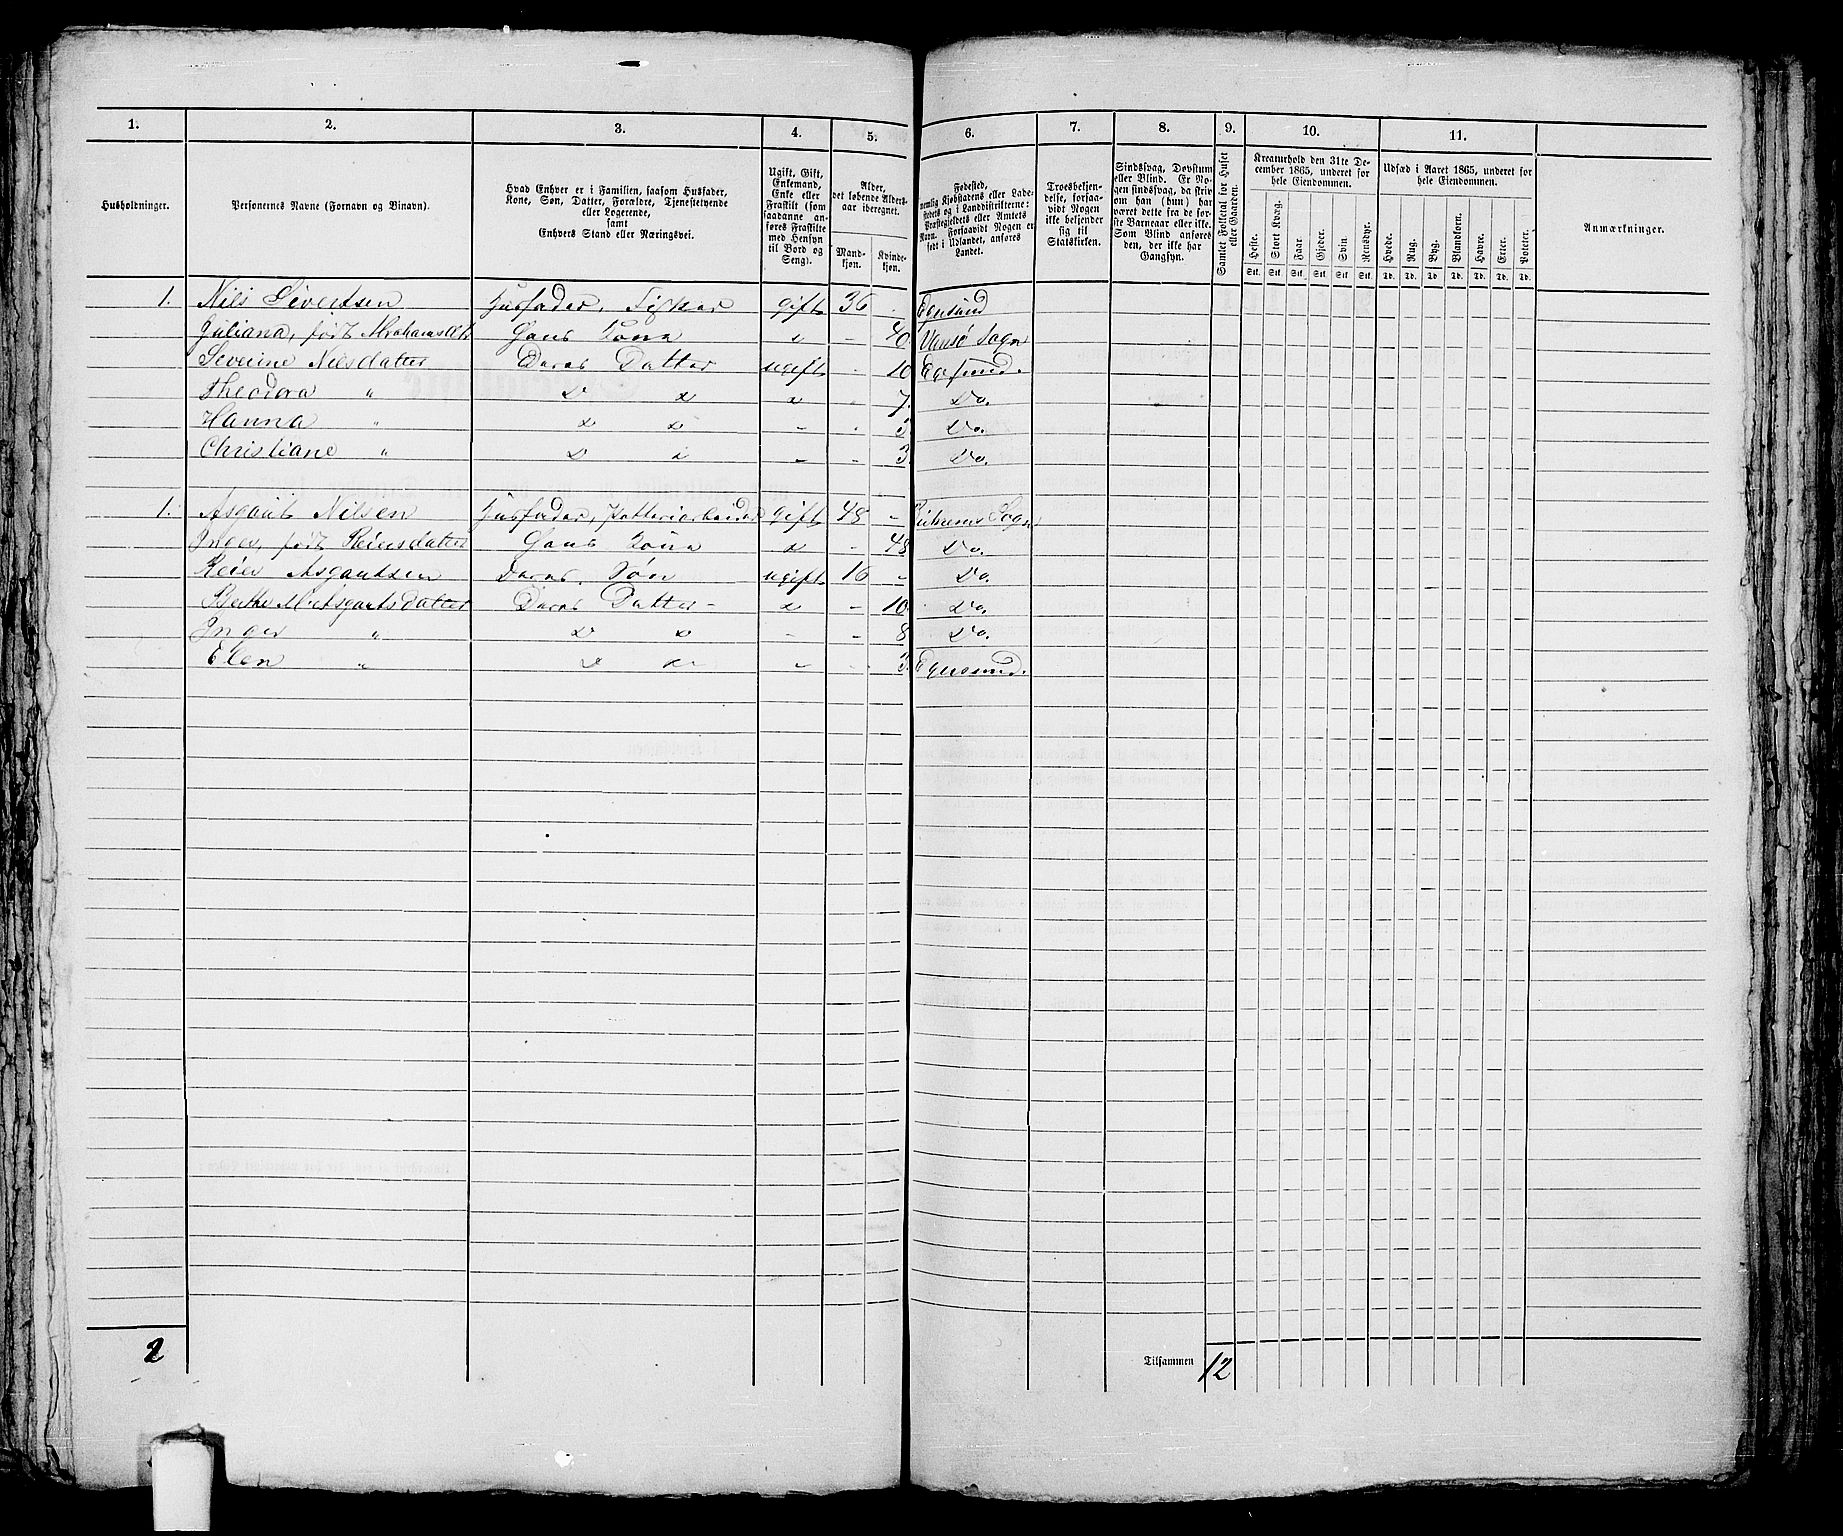 1. 2. 3. 4. 5. 6. 7. 8. 9. 10. 11.
Husholdninger.
Personernes Navne (Fornavn og Binavn).
Hvad Enhver er i Familien, saasom Husfader,
Kone, Søn, Datter, Forældre, Tjenestetyende
eller Logerende,
samt
Enhvers Stand eller Næringsvei.
Ugift, Gift,
Enkemand,
Enke eller
Fraskilt (som
saadanne an-
føres Fraskilte
med Hensyn
til Bord og
Seng).
Alder,
det løbende Alders-
aar iberegnet.
Mand-
kjøn.
Kvinde-
kjøn.
Fødested,
nemlig Kjøbstadens eller Lade-
stedets og i Landdistrikterne:
Præstegjeldets eller Amtets
Navn. Forsaavidt Nogen er
født i Udlandet, anføres
Landet.
Troesbekjen-
delse, forsaa-
vidt Nogen
ikke bekjender
sig til
Statskirken.
Sindssvag, Døvstum
eller Blind. Er No-
gen sindssvag, da skriv
om han (hun) har
været dette fra de før-
ste Barneaar eller ikke.
Som Blind anføres
den, der ikke har
Gangsyn.
Samlet Folketal for Huset
eller Gaarden.
Kreaturhold den 31te De-
cember 1865, underet for
hele Eiendommen.
Heste. Stort Kvæg. Faar. Gjeder. Svin. Rensdyr.
Stk. Stk. Stk. Stk. Stk. Stk.
Udsæd i Aaret 1865, underet for
hele Eiendommen.
Hvede. Rug. Byg. Blandkorn. Havre. Erter. Poteter.
Td. Td. Td. Td. Td. Td. Td.
Anmærkninger.
1. Nils Sivertsen Husfader, Fisker gift 36 - Egersund
Juliana, født Abrahamsdtr Hans Kone " - 40 Sogn
Severine Nilsdatter Deres Datter ugift - 10 Egersund.
Theodora " " " " - 7. Do.
Hanna " " " - - 5 Do.
Christiane " " " - - 3 Do.
1. Asgaut Nilsen Husfader, Potteriarbeider gift 48 - Sogn
Inger, født Reiersdatter Hans Kone " - 48 Do.
Reier Asgautsen Deres Søn ugift 16 - Do.
Berthe M. Asgautsdatter Deres Datter - " - 10 Do.
Inger " " " - - 8 Do.
Elen " " " - - 3. Egersund.
2 Tilsammen 12